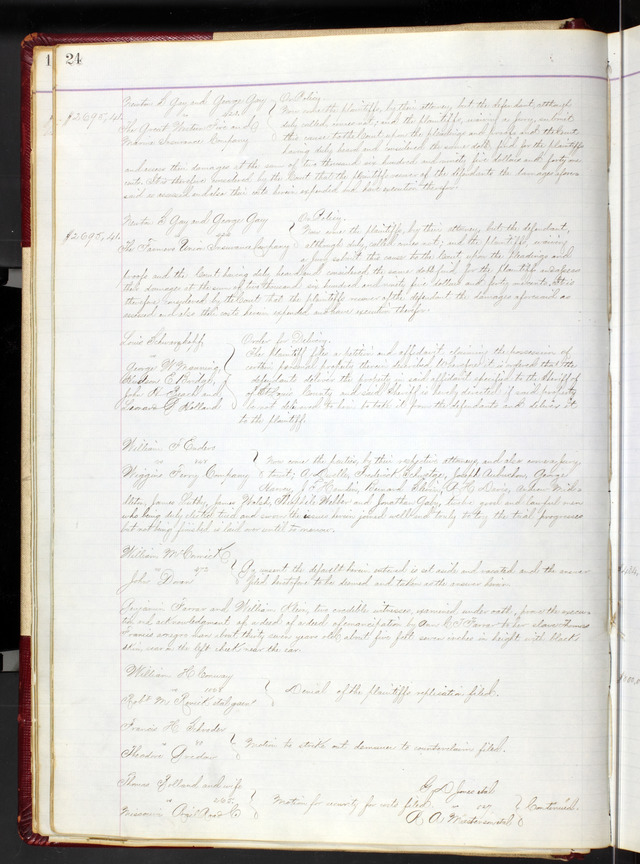 1 24
Newton E Gay and George Gay On Policy.
$2695,41. vs Now come the plaintiffs, by their attorney, but the defendant, although
The Great Western Fire and duly called, comes not; and the plaintiffs, waiving a jury, submit
Marine Insurance Company this cause to the Court upon the pleadings and proofs and the Court
having duly heard and considered the same doth find for the plaintiffs
and assess their damages at the sum of two thousand six hundred and ninety five dollars and forty one
cents. It is therefore considered by the Court that the plaintiffs recover of the defendants the damages afore
said as assessed and also their costs herein expended and have execution therefor.
Newton E Gay and George Gay On Policy.
$2695,41. vs Now come the plaintiffs, by their attorney, but the defendant,
The Farmers Union Insurance Company although duly called comes not; and the plaintiffs, waiving
a jury submit this cause to the Court upon the pleadings and
proofs and the Court having duly heard and considered the same doth find for the plaintiffs and assess
their damages at the sum of two thousand six hundred and ninety five dollars and forty one cents. It is
therefore considered by the Court that the plaintiffs recover of the defendant the damages aforesaid as
assessed and also their costs herein expended and have execution therefor.
Louis Schwarzkopff Order for Delivery.
vs The plaintiff files a petition and affidavit claiming the possession of
George W certain personal property therein described Whereupon it is ordered that the
defendants deliver the property in said affidavit specified to the Sheriff of
John and of St Louis County and said Sheriff is hereby directed if said property
Holland be not delivered to him to take it from the defendants and deliver it
to the plaintiff.
William F Enders
vs Now come the parties, by their respective attorneys, and also comes a jury
Wiggins Ferry Company to wit; Frederick Joseph
A H Davis,
James James Walsh, and Jonathan twelve good and lawful men
who being duly elected tried and sworn the issues herein joined well and truly to try the trial progresses
but not being finished is laid over until to morrow.
William McCormick
vs By consent the default herein entered is set aside and vacated and the answer
John Doran filed heretofore to be deemed and taken as the answer herein.
Benjamin Farrar and William two credible witnesses, examined under oath, prove the execu-
tion and acknowledgment of a deed of a deed of emancipation by Ann C T Farrar to her slave Thomas
Francis a negro man about thirty seven years old, about five feet seven inches in height with black
skin, scar on the left cheek near the ear.
William H Conway
vs Denial of the plaintiffs replication filed.
Robt M
Francis H Schroder
vs Motion to strike out demurrer to counterclaim filed.
Theodore
Thomas Holland and wife G S Jones et al
vs Motion for security for costs filed. vs Continued.
Missouri R A et al